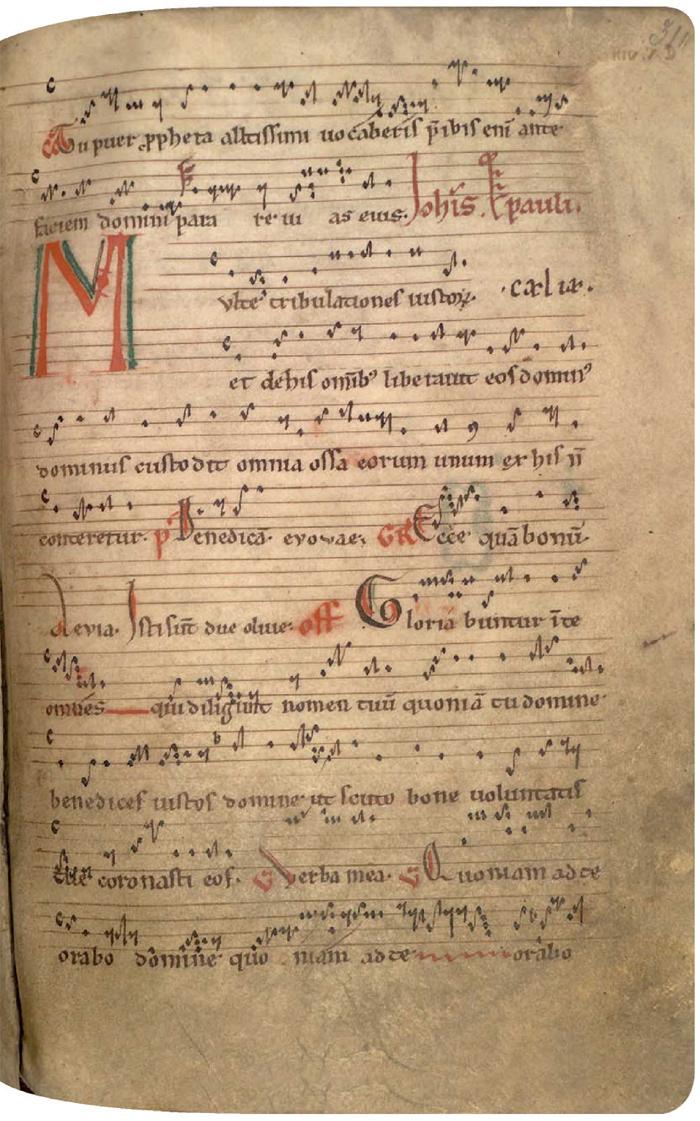 Tu puer ꝓpheta altissimi uocaberis p̄ibis eni᷑ ante
faciem domini para re ui as eius. Joh̄is. ⁊ pauli.
M vlte tribulationes iustoꝝ. cælia.
et dehis omībꝰ liberauit eos dominꝰ
dominus custodit omnia ossa eorum unum ex his n̄
conteretur. p̄ Benedicā. evovae. GR Ecce quā bonū.
Aevia. Isti sūt due oliue. off Gloria buntur ī te
omnes qui diligunt nomen tuū quoniā tu domine
benedices iustos domine ut scuto bone uoluntatis
tue coronasti eos. V Verba mea. V Quoniam ad te
orabo domine quo niam ad te orabo